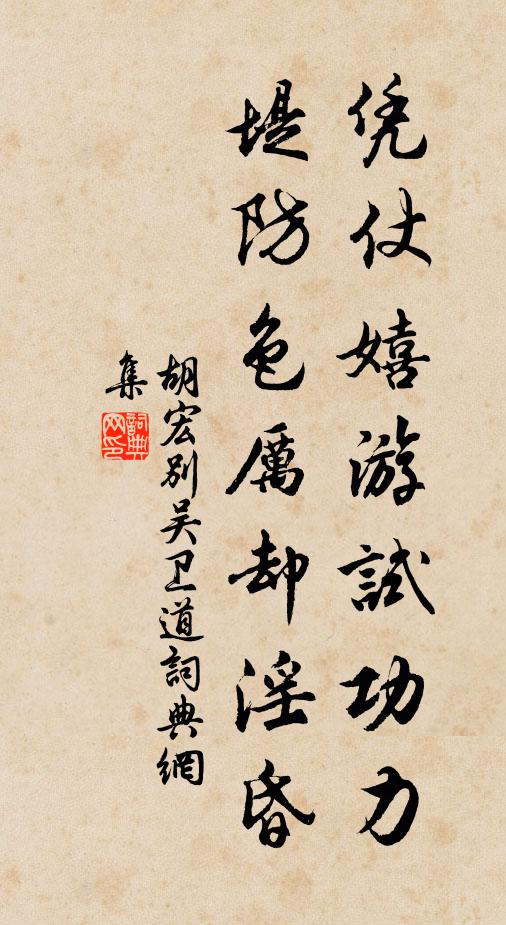 凭仗嬉游試功力
堤防色厲却淫昏
胡宏别吴卫道詞典網
集
詞典
网印